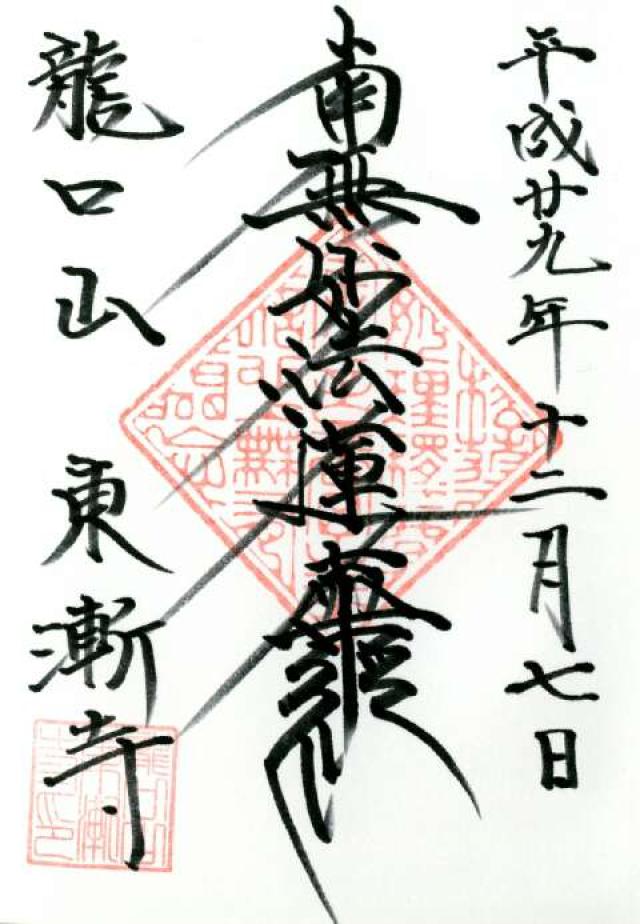 平成廿九年十二月七日
南無妙法蓮華経
龍口山 東漸寺